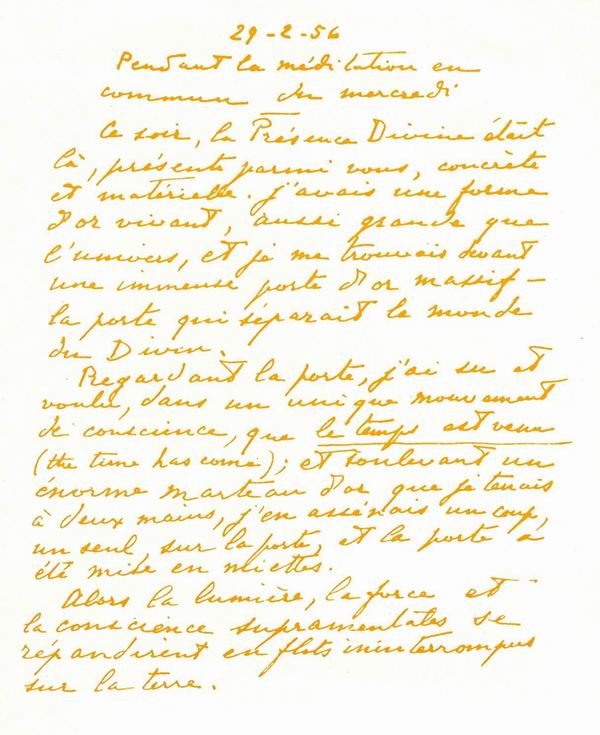 29-2-56
Pendant la méditation en
commun du mercredi
Ce soir, la Présence Divine était
là, présente parmi vous, concrète
et matérielle. J'avais une forme
d'or vivant, aussi grande que
l'univers, et je me trouvais devant
une immense porte d'or massif –
la porte qui séparait le monde
du Divin.
Regardant la porte, j'ai su et
voulu, dans un unique mouvement
de conscience, que le temps est venu
(the time has come); et soulevant un
énorme marteau d'or que je tenais
à deux mains, j'en assénais un coup,
un seul, sur la porte, et la porte a
été mise en miettes.
Alors la lumière, la force et
la conscience supramentales se
répandirent en flots ininterrompus
sur la terre.